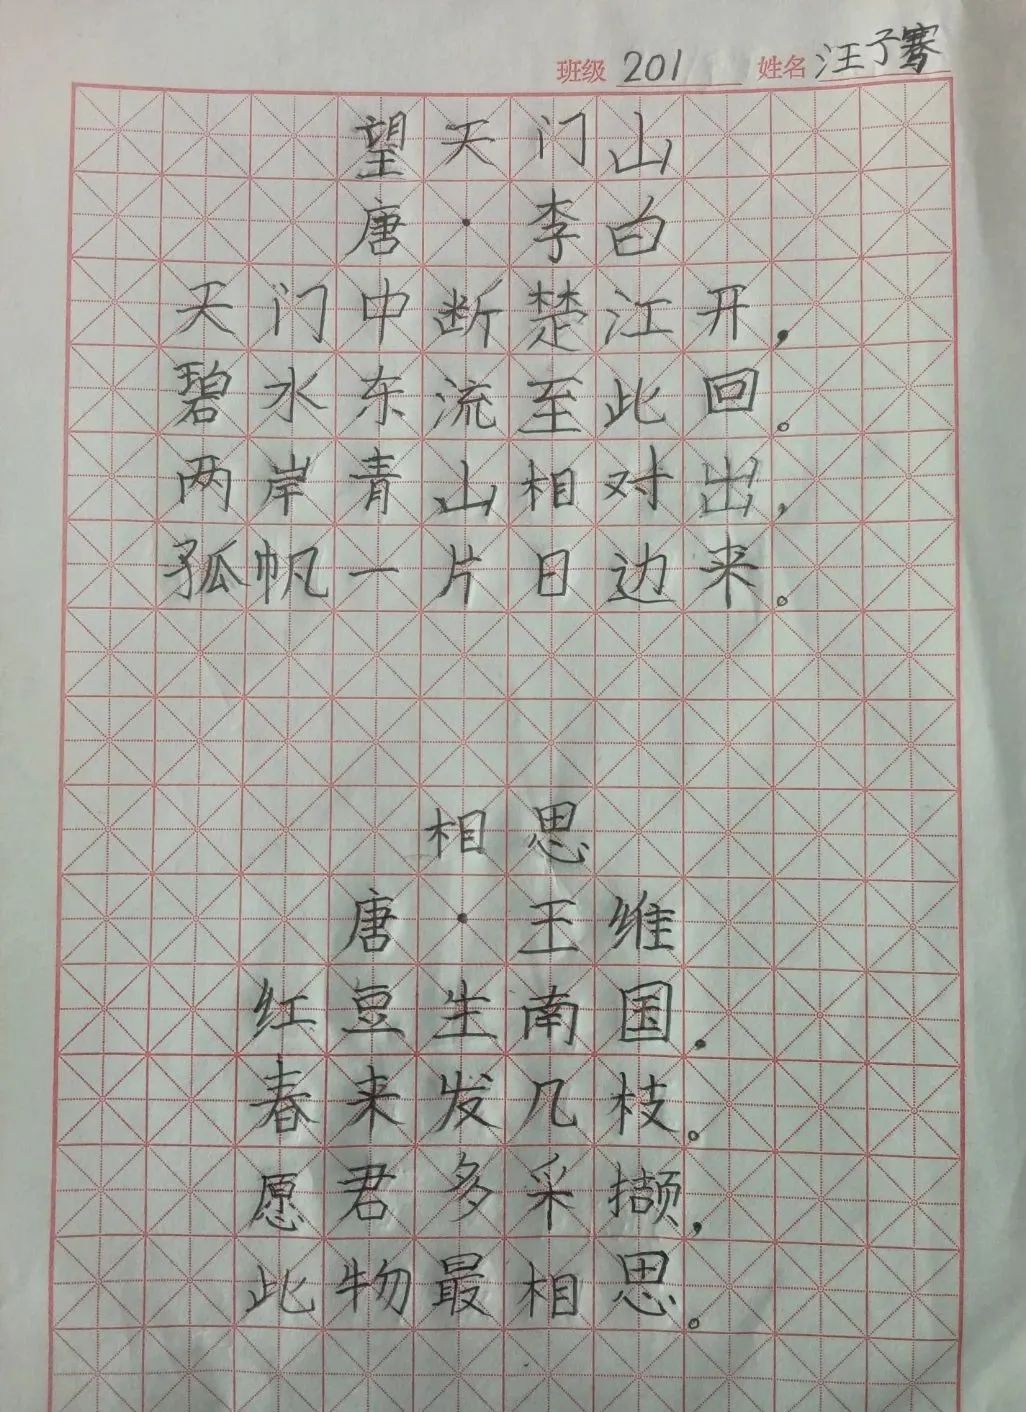 班级 201 姓名 汪子骞
望天门山
唐·李白
天门中断楚江开，
碧水东流至此回。
两岸青山相对出，
孤帆一片日边来。
相思
唐·王维
红豆生南国，
春来发几枝。
愿君多采撷，
此物最相思。